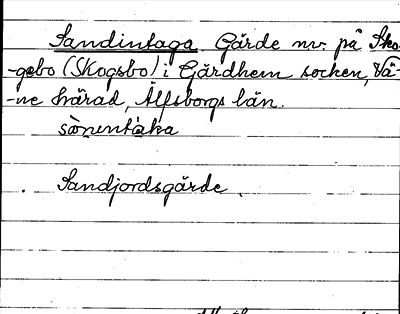 Sandintaga. Gärde nv. på Sko-
-gebo (Skogsbo) i Gärdhem socken, Vä-
-ne härad, Älfsborgs län.
sànentàka
Sandjordsgärde.